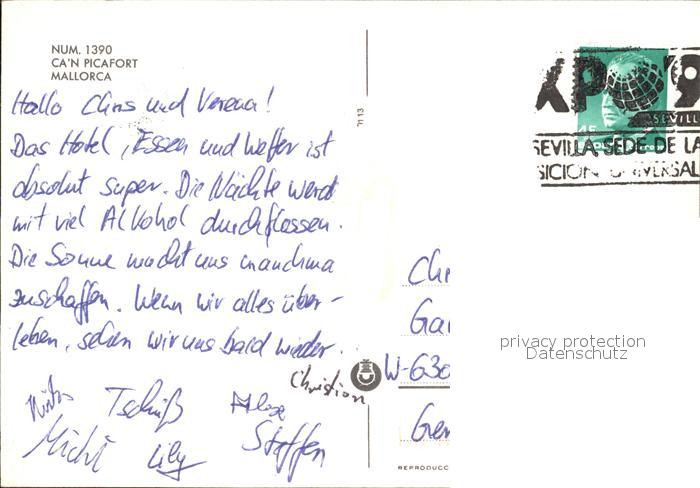 NUM. 1390
CA'N PICAFORT
MALLORCA
Hallo Chris und Verena!
Das Hotel, Essen und Wetter ist
absolut super. Die Nächte werd
mit viel Alkohol durchflossen.
Die Sonne macht uns manchma
zuschaffen. Wenn wir alles über-
leben, sehen wir uns bald wieder.
Christian
Tschüß
Michi Lily Steffen
XPO '9
SEVILL
SEVILLA, SEDE DE LA
SICION UNIVERSAL
Chr
Gar
W-630
Ger
privacy protection
Datenschutz
REPRODUCC